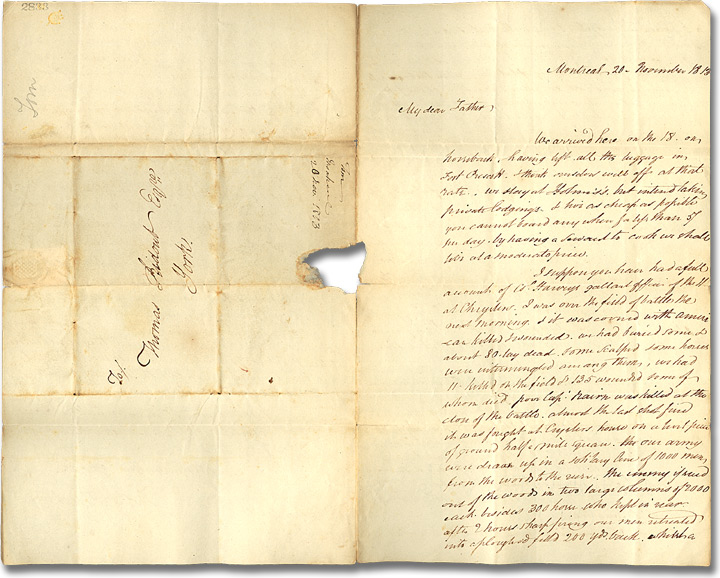 2833
Tom
To/.
Thomas Ridout Esqre
York
Tom
20 Nov. 1813
Montreal, 20 November 1813
My dear Father,
We arrived here on the 18. on
horseback, having left all the luggage in
Fort Prescott. I think we are well off at that
rate. we stay at but intend taking
private lodgings & live as cheap as possible
you cannot board anywhere for less than
per day. by having a servant to cook we shall
live at a moderate price.
I suppose you have had a full
account of Col. Harveys gallant affair of the 11
at Chryslers. I was over the field of battle the
next morning. & it was covered with Ameri-
can killed & wounded. we had buried some &
about 80 lay dead. some scalped some horses
were intermingled among them, we had
11 killed on the field & 135 wounded some of
whom died. poor Capt. Nairn was killed at the
close of the battle. almost the last shot fired
it was fought at Cryslers house on a level piece
of ground half a mile square. the our army
were drawn up in a solitary line of 1000 men,
from the woods to the river. the enemy issued
out of the woods in two large columns of 2000
each. besides 300 horse who kept in rear
after 2 hours sharp firing our men retreated
into a ploughed field 200 yds. back. which a